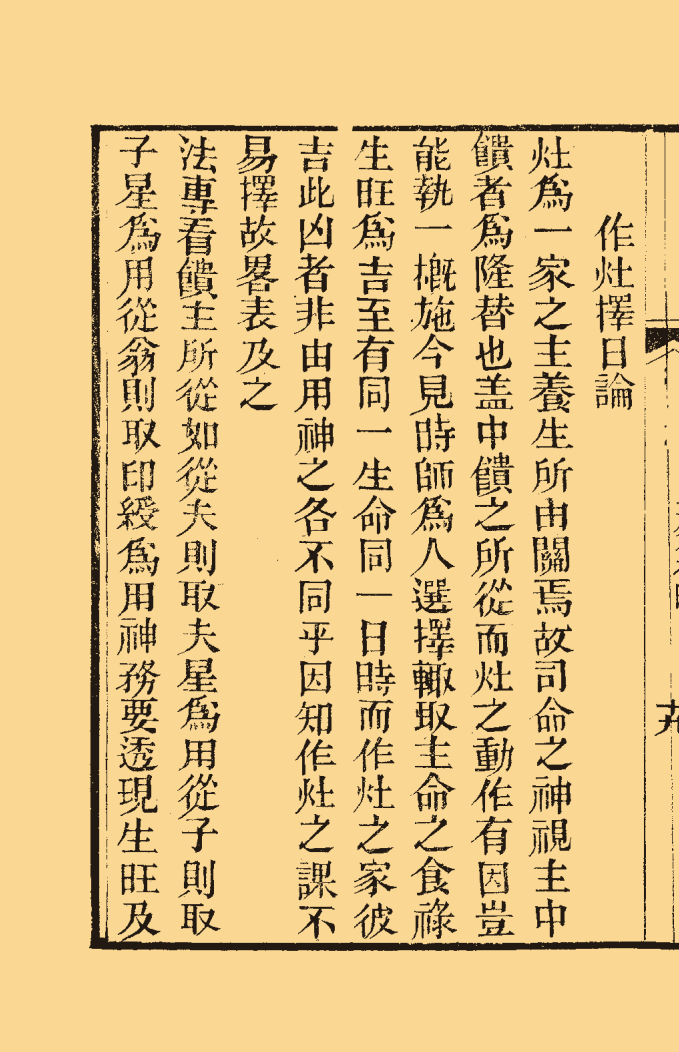 作灶擇日論
灶爲一家之主養生所由關焉故司命之神視主中
饋者爲隆替也盖中饋之所從而灶之動作有因豈
能執一槪施今見時師爲人選擇輙取主命之食祿
生旺爲吉至有同一生命同一日時而作灶之家彼
吉此凶者非由用神之各不同乎因知作灶之課不
易擇故畧表及之
法專看饋主所從如從夫則取夫星爲用從子則取
子星爲用從翁則取印綬爲用神務要透現生旺及